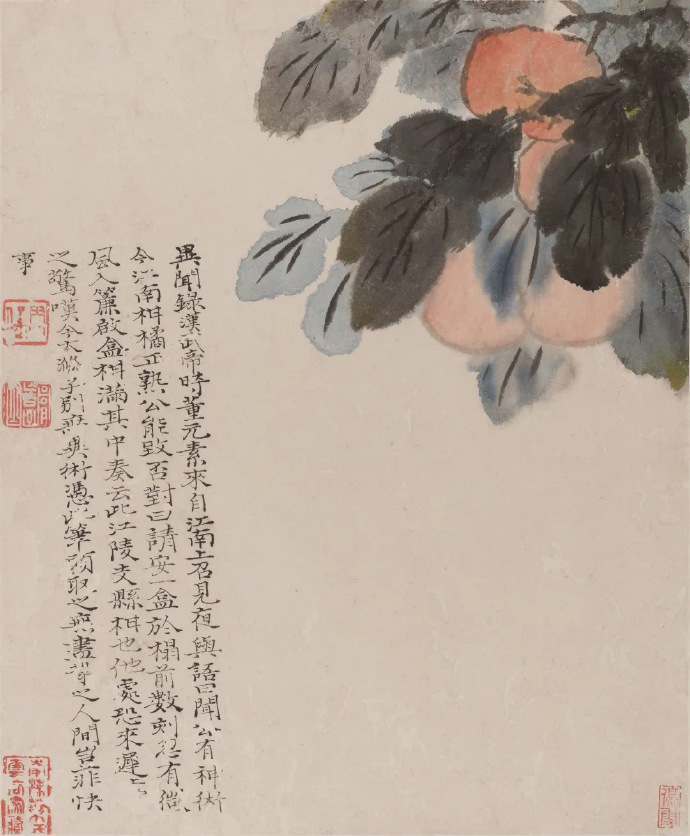 異聞錄漢武帝時董元素來自江南上召見夜與語曰聞公有神術
今江南柑橘正熟公能致否對曰請安一盒於榻前數刻忽有微
風入簾啟盒柑滿其中奏云此江陵支縣柑也他處恐來遲上
之驚嘆今大滌子別無異術憑此筆頭取之無盡背之人間豈非快
事